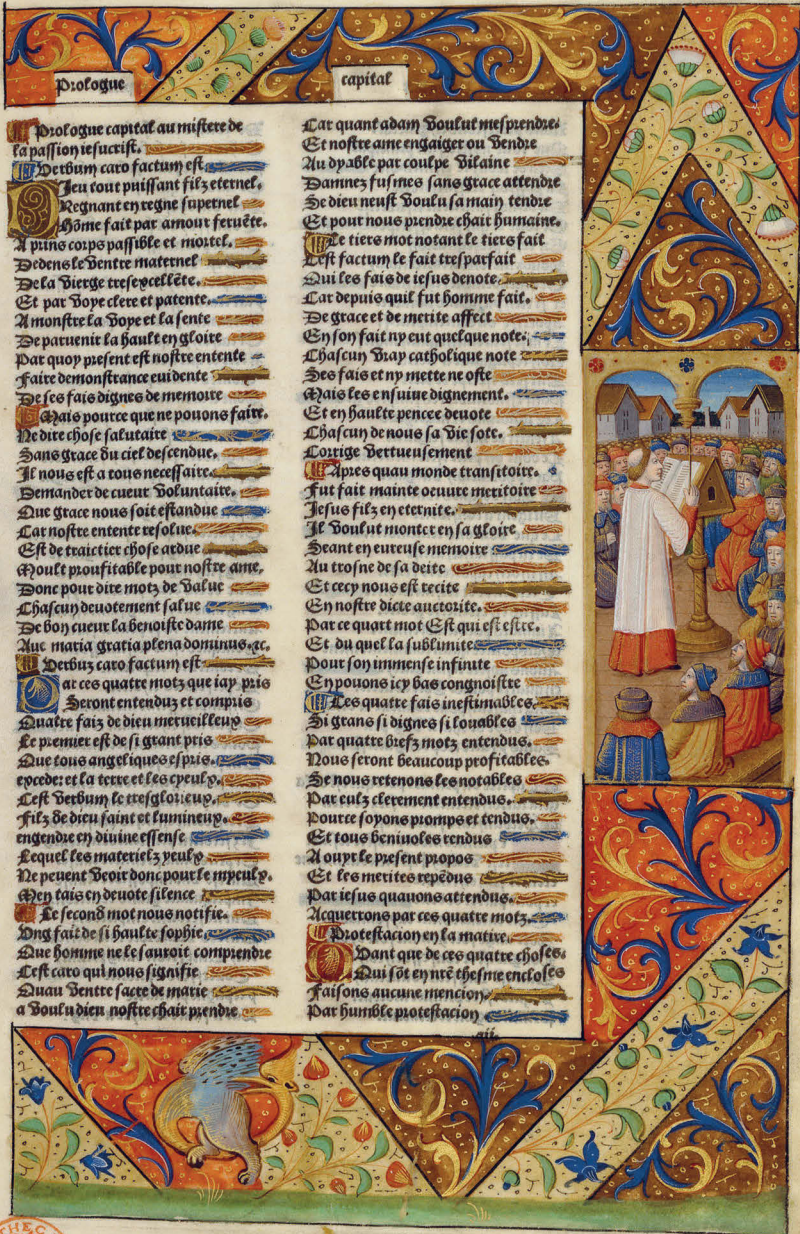 Prologue
capital
Prologue capital au mistere de
la passion iesucrist.
Verbum caro factum est
Dieu tout puissant filz eternel.
Regnant en regne supernel
Hõme fait par amour feruẽte.
A prins corps passible et mortel.
Dedens le ventre maternel
De la vierge tresexcellẽte.
Et par voye clere et patente.
A monstre la voye et la sente
De paruenir la hault en gloire
Par quoy present est nostre entente
Faire demonstrance euidente
De ses fais dignes de memoire
Mais pource que ne pouons faire.
Ne dire chose salutaire
Sans grace du ciel descendue.
Il nous est a tous necessaire.
Demander de cueur voluntaire.
Que grace nous soit estandue
Car nostre entente resolue.
Est de traictier chose ardue
Moult proufitable pour nostre ame.
Donc pour dire motz de value
Chascun deuotement salue
De bon cueur la benoiste dame
Aue maria gratia plena dominus.⁊c.
Verbuz caro factum est
Par ces quatre motz que iay pris
Seront entenduz et compris
Quatre faiz de dieu merueilleux
Le premier est de si grant pris
Que tous angeliques espris.
exceder et la terre et les cyeulx.
Cest verbum le tresglorieux.
Filz de dieu saint et lumineux.
engendre en diuine essense
Lequel les materielz yeulx
Ne peuent veoir donc pour le myeulx.
Men tais en deuote silence
Le second mot nous notifie.
Vng fait de si haulte sophie
Que homme ne le sauroit comprendre
Cest caro qui nous signifie
Quau ventre sacre de marie
a voulu dieu nostre chair prendre
Car quant adam voulut mesprendre.
Et nostre ame engaiger ou vendre
Au dyable par coulpe vilaine
Damnez fusmes sans grace attendre
Se dieu neust voulu sa main tendre
Et pour nous prendre chair humaine.
Le tiers mot notant le tiers fait
Cest factum le fait tresparfait
Qui les fais de iesus denote.
Car depuis quil fut homme fait.
De grace et de merite affect
En son fait ny eut quelque note.
Chascun vray catholique note
Ses fais et ny mette ne oste
Mais les ensuiue dignement.
Et en haulte pencee deuote
Chascun de nous sa vie sote.
Corrige vertueusement
Apres quau monde transitoire.
Fut fait mainte oeuure meritoire
Iesus filz en eternite.
Il voulut monter en sa gloire
Seant en eureuse memoire
Au trosne de sa deite
Et cecy nous est recite
En nostre dicte auctorite.
Par ce quart mot Est qui est estre.
Et du quel la sublimite
Pour son immense infinite
En pouons icy bas congnoistre
Les quatre fais inestimables.
Si grans si dignes si louables
Par quatre brefz motz entendus.
Nous seront beaucoup profitables.
Se nous retenons les notables
Par eulz clerement entendus.
Pource soyons promps et tendus.
Et tous beniuoles rendus
A ouyr le present propos
Et les merites repẽdus
Par iesus quauons attendus.
Acquerrons par ces quatre motz.
Protestacion en la matire.
Dvant que de ces quatre choses.
Qui sõt en nrẽ thesme encloses
Faisons aucune mencion.
Par humble protestacion